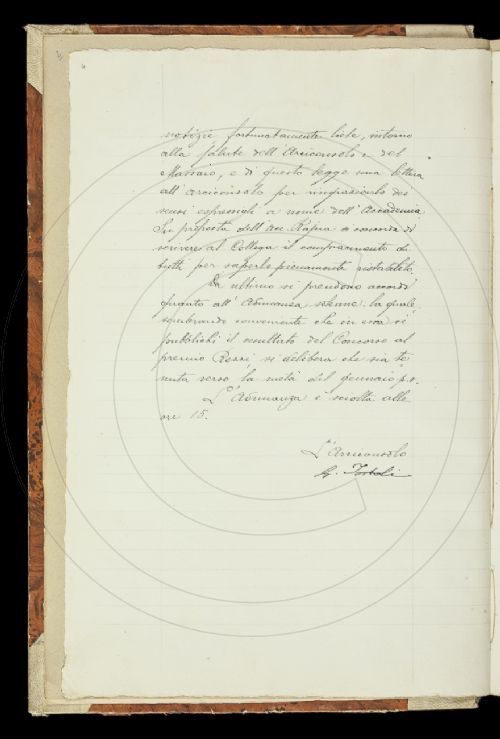 notizie fortunatamente liete, intorno
alla salute dell'Arciconsolo e del
Massaio, e di questo legge una lettera
all'arciconsolo per ringraziarlo dei
sensi espressigli a nome dell'Accademia
Su proposta dell'acc. Rajna si concorda di
scrivere al Collega il compiacimento di
tutti per saperlo pienamente ristabilito.
Da ultimo si prendono accordi
quanto all'Adunanza solenne la quale
sembrando conveniente che in essa si
pubblichi il resultato del Concorso al
premio Rezzi si delibera che sia te-
nuta verso la metà del gennaio p.v.
L'Adunanza è sciolta alle
ore 15.
L'Arciconsolo
G. Tortoli